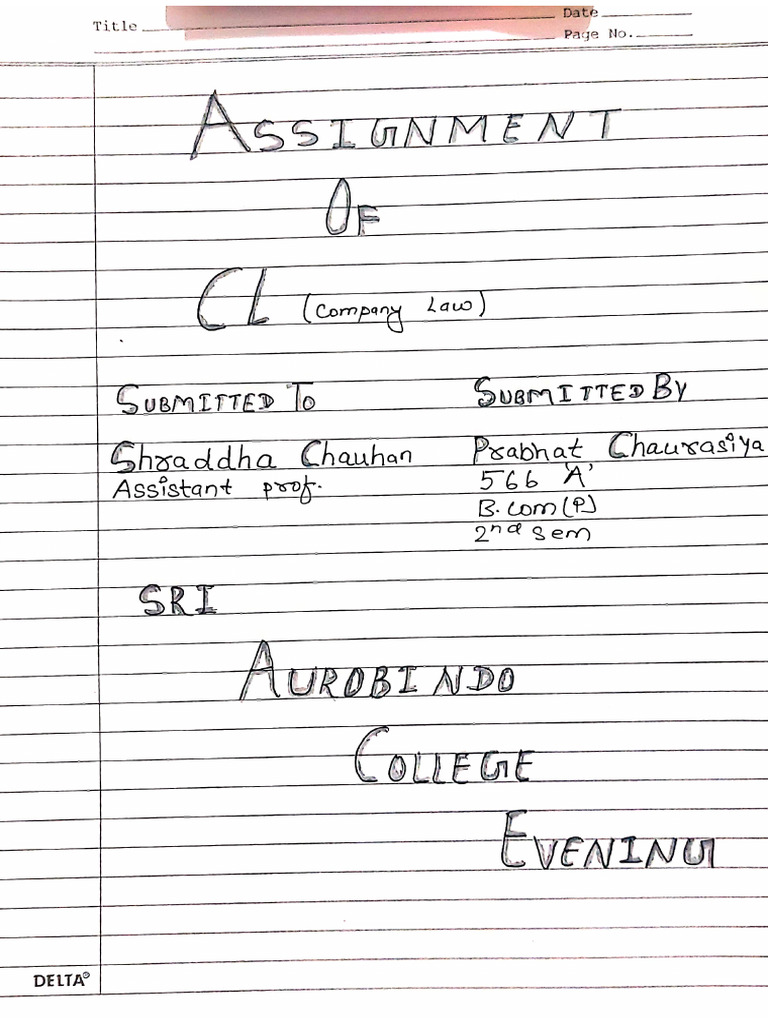 Title
Date
Page No.
ASSIGNMENT
OF
CL (Company Law)
SUBMITTED TO
SUBMITTED BY
Shraddha Chauhan
Assistant prof.
Prabhat Chaurasiya
566 'A'
B.com (P)
2nd sem
SRI
AUROBINDO
COLLEGE
EVENING
DELTA®